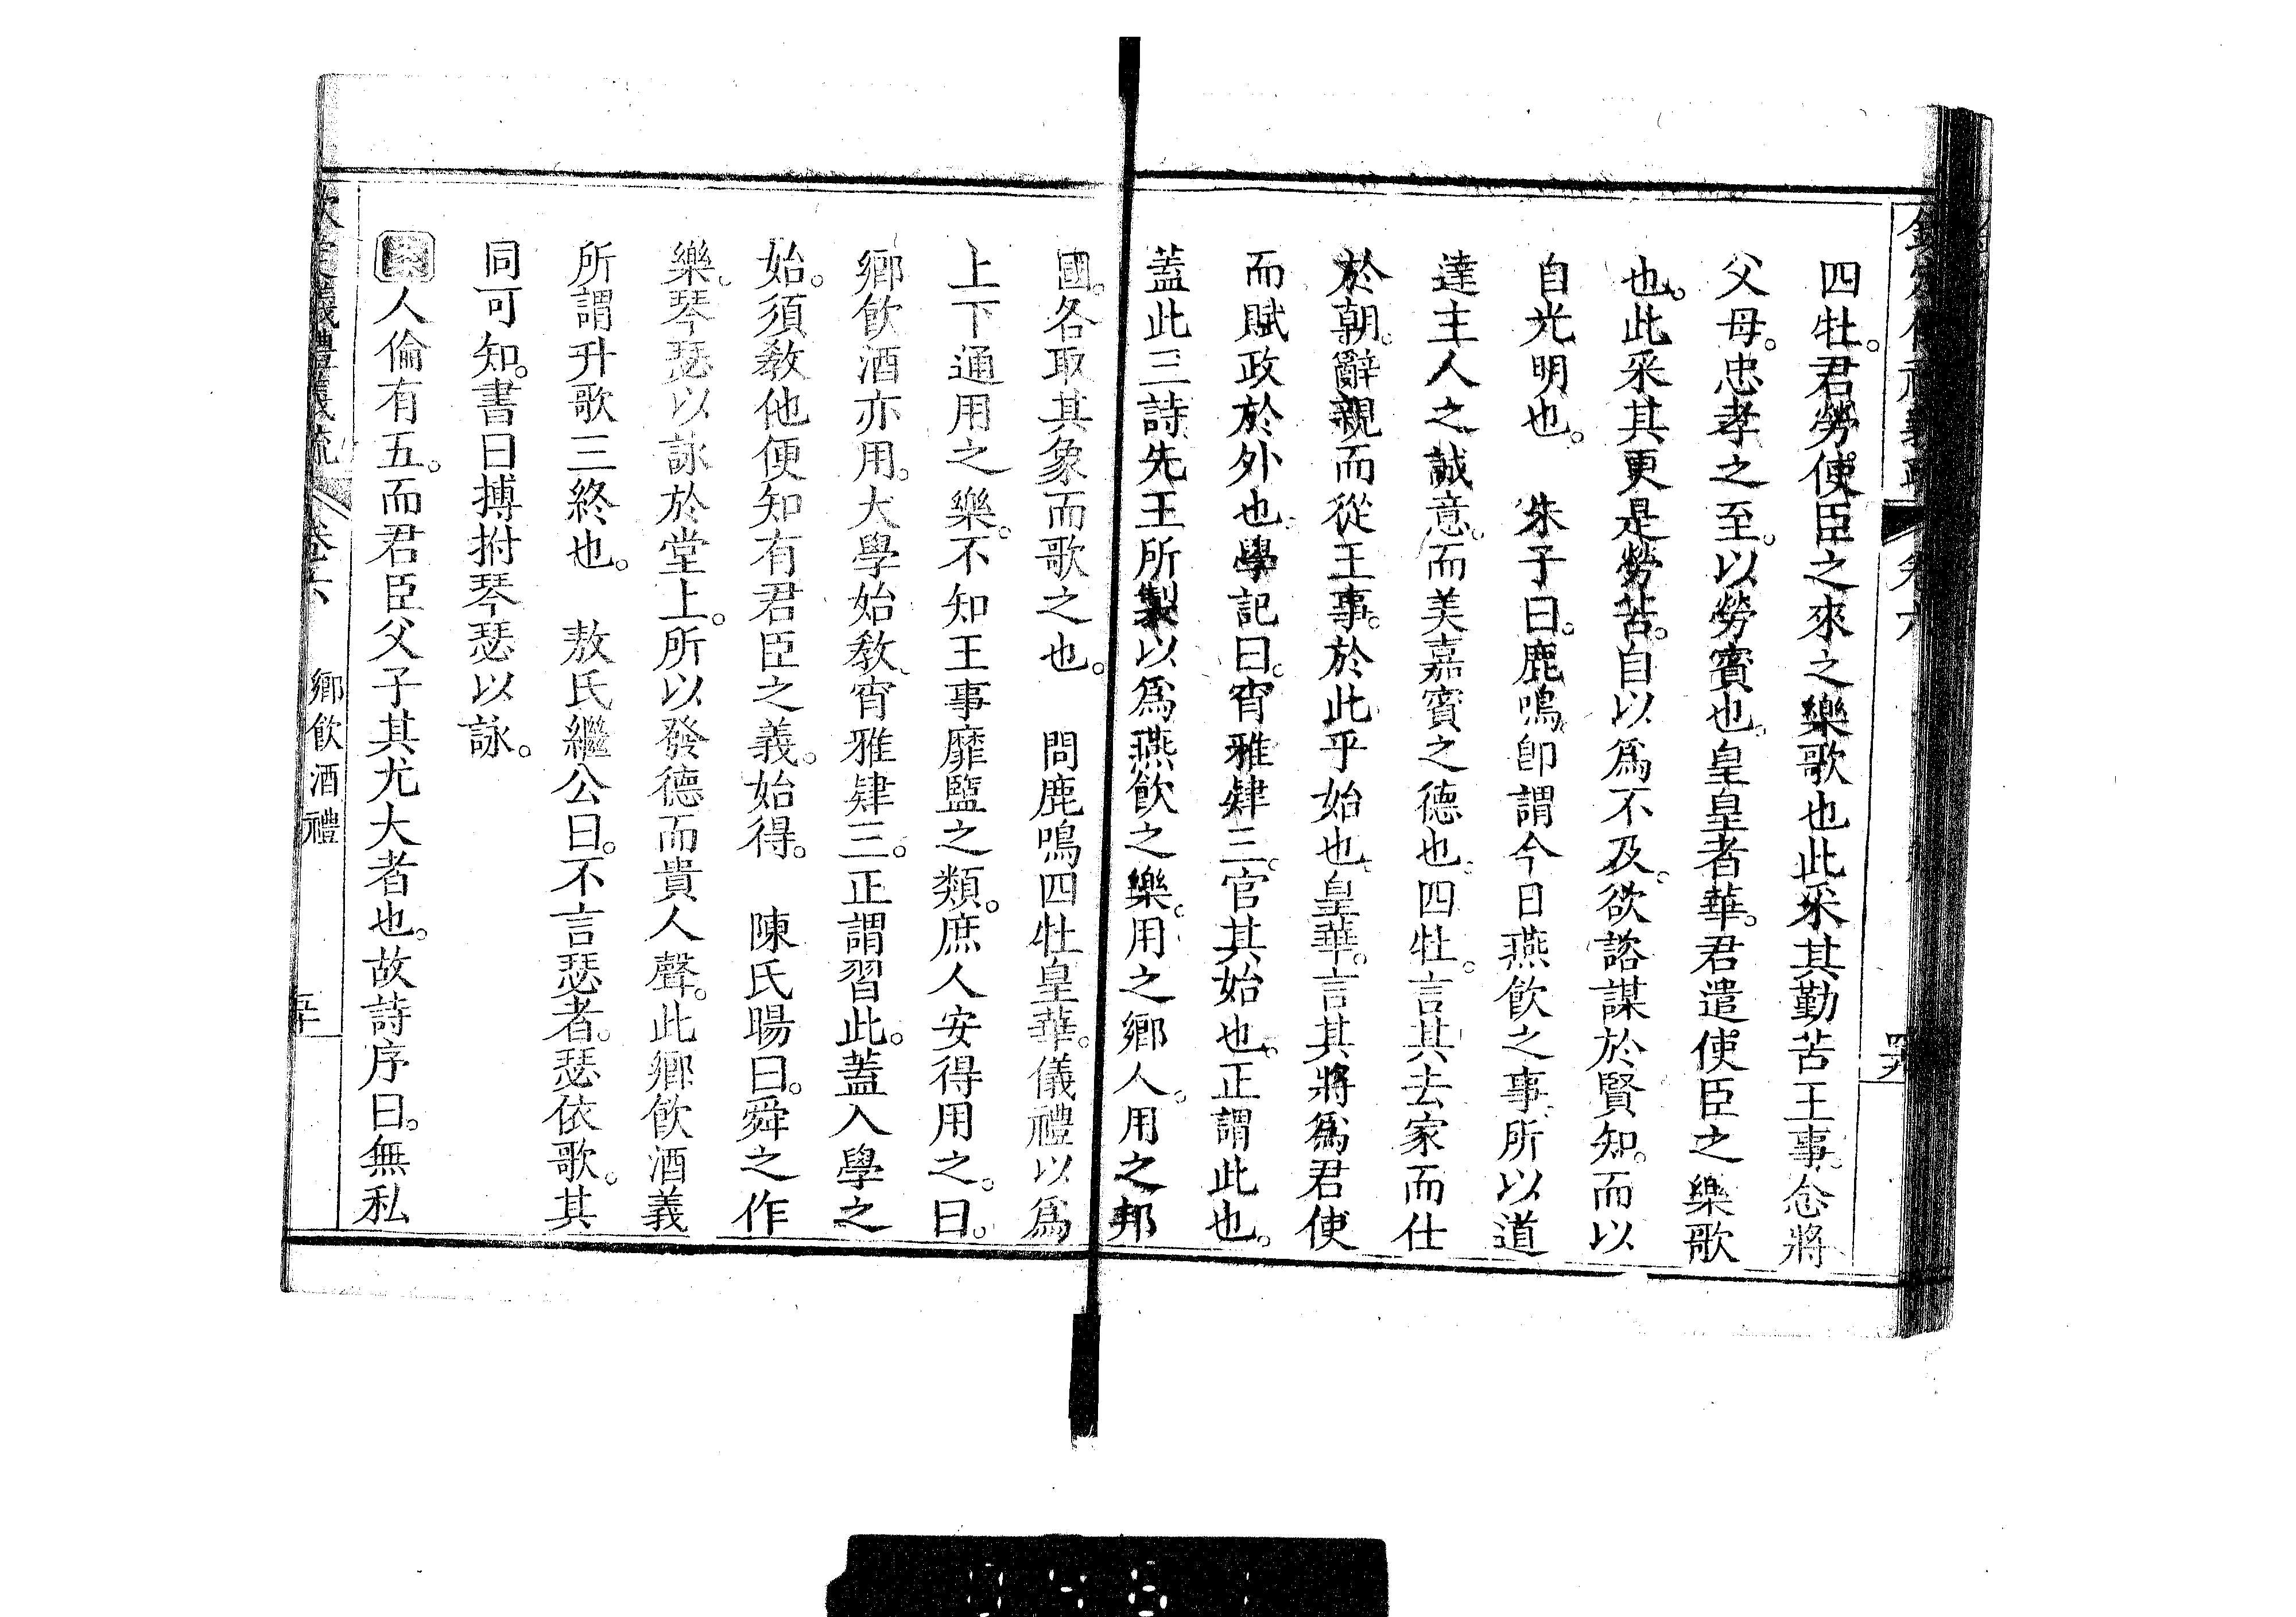 四牡。君勞使臣之來之樂歌也此采其勤苦王事。念將
父母。忠孝之至。以勞賓也。皇皇者華。君遣使臣之樂歌
也。此采其更是勞苦。自以爲不及。欲諮謀於賢知。而以
自光明也。　朱子曰。鹿鳴卽謂今日燕飮之事。所以道
達主人之誠意。而美嘉賓之德也。四牡。言其去家而仕
於朝。辭親而從王事。於此乎始也。皇華。言其將爲君使
而賦政於外也。學記曰。宵雅肄三。官其始也。正謂此也。
蓋此三詩先王所製以爲燕飮之樂。用之鄉人。用之邦
國。各取其象而歌之也。　問鹿鳴四牡皇華。儀禮以爲
上下通用之樂。不知王事靡盬之類。庶人安得用之。曰。
鄉飮酒亦用。大學始敎。宵雅肄三。正謂習此。蓋入學之
始。須敎他便知有君臣之義。始得。　陳氏暘曰。舜之作
樂。琴瑟以詠於堂上。所以發德而貴人聲。此鄉飮酒義
所謂升歌三終也。　敖氏繼公曰。不言瑟者。瑟依歌。其
同可知。書曰搏拊琴瑟以詠。
人倫有五。而君臣父子其尤大者也。故詩序曰。無私
欽定儀禮義疏　卷六　鄉飮酒禮